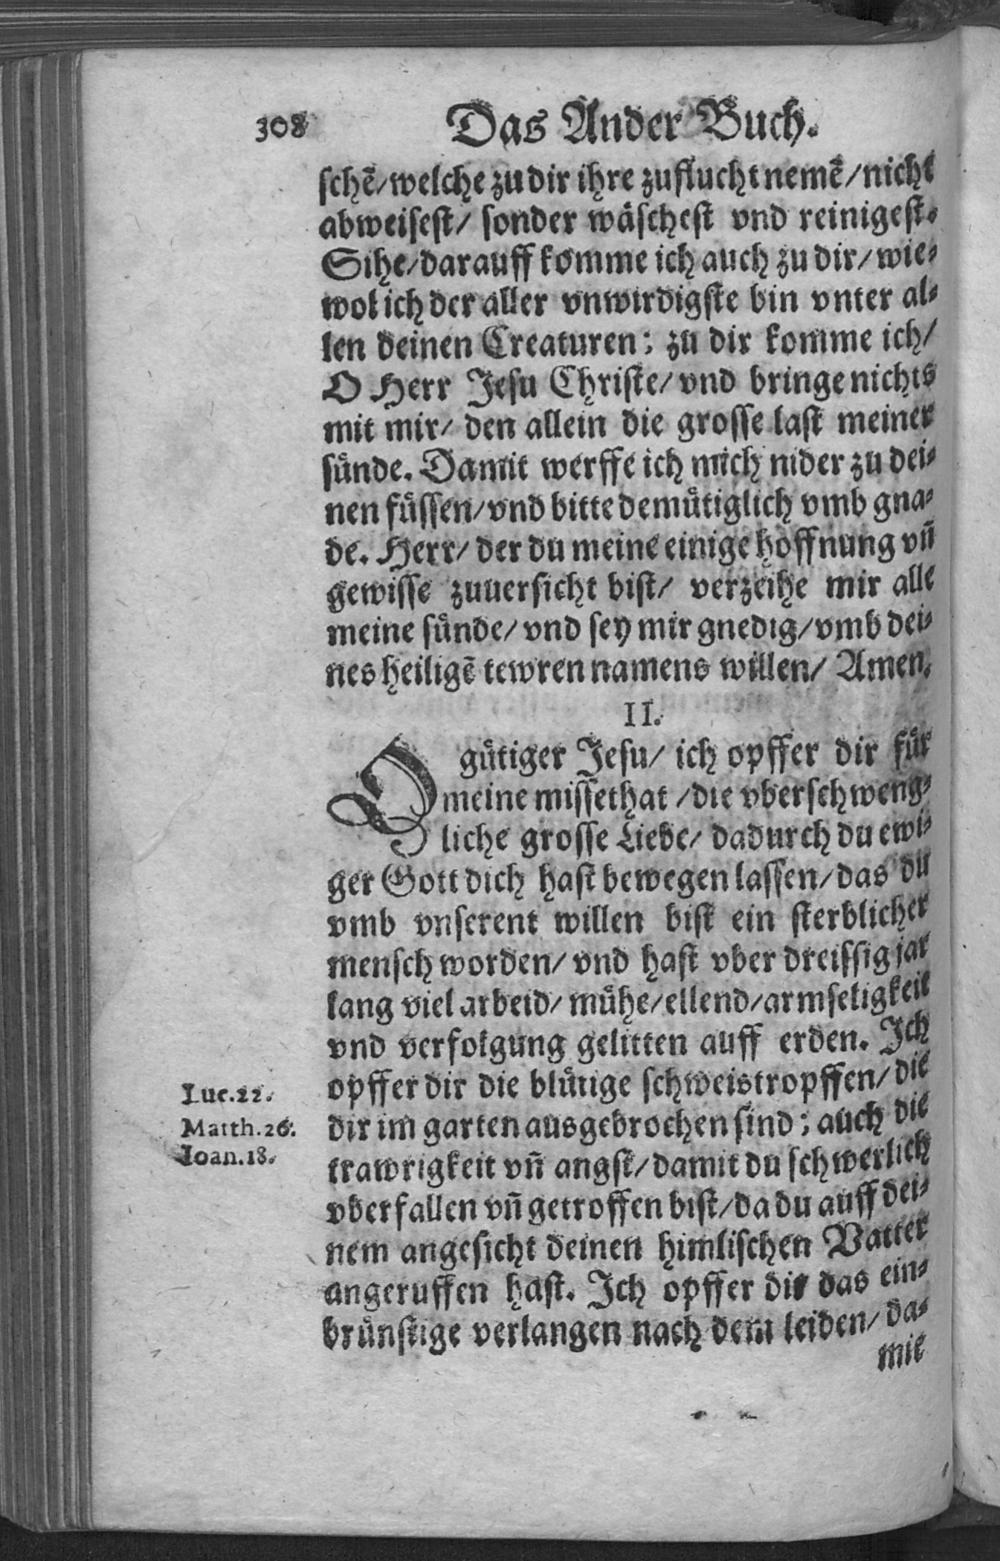 308 Das Ander Buch.
schẽ/welche zu dir ihre zuflucht nemẽ/nicht
abweisest/ sonder wäschest vnd reinigest.
Sihe/darauff komme ich auch zu dir/wie-
wol ich der aller vnwirdigste bin vnter al-
len deinen Creaturen: zu dir komme ich/
O Herr Jesu Christe/vnd bringe nichts
mit mir/ den allein die grosse last meiner
sünde. Damit werffe ich mich nider zu dei-
nen füssen/vnd bitte demütiglich vmb gna-
de. Herr/ der du meine einige hoffnung vñ
gewisse zuuersicht bist/ verzeihe mir alle
meine sünde/vnd sey mir gnedig/vmb dei-
nes heiligẽ tewren namens willen/ Amen.
II.
O gütiger Jesu/ ich opffer dir für
meine missethat/die vberschweng-
liche grosse Liebe/ dadurch du ewi-
ger Gott dich hast bewegen lassen/das du
vmb vnserent willen bist ein sterblicher
mensch worden/ vnd hast vber dreissig jar
lang viel arbeid/ mühe/ellend/armseligkeit
vnd verfolgung gelitten auff erden. Ich
opffer dir die blütige schweistropffen/die
dir im garten ausgebrochen sind: auch die
trawrigkeit vñ angst/damit du schwerlich
vberfallen vñ getroffen bist/da du auff dei-
nem angesicht deinen himlischen Vatter
angeruffen hast. Ich opffer dir das ein-
brünstige verlangen nach dem leiden/da-
mit
Luc.22.
Matth.26.
Ioan.18.